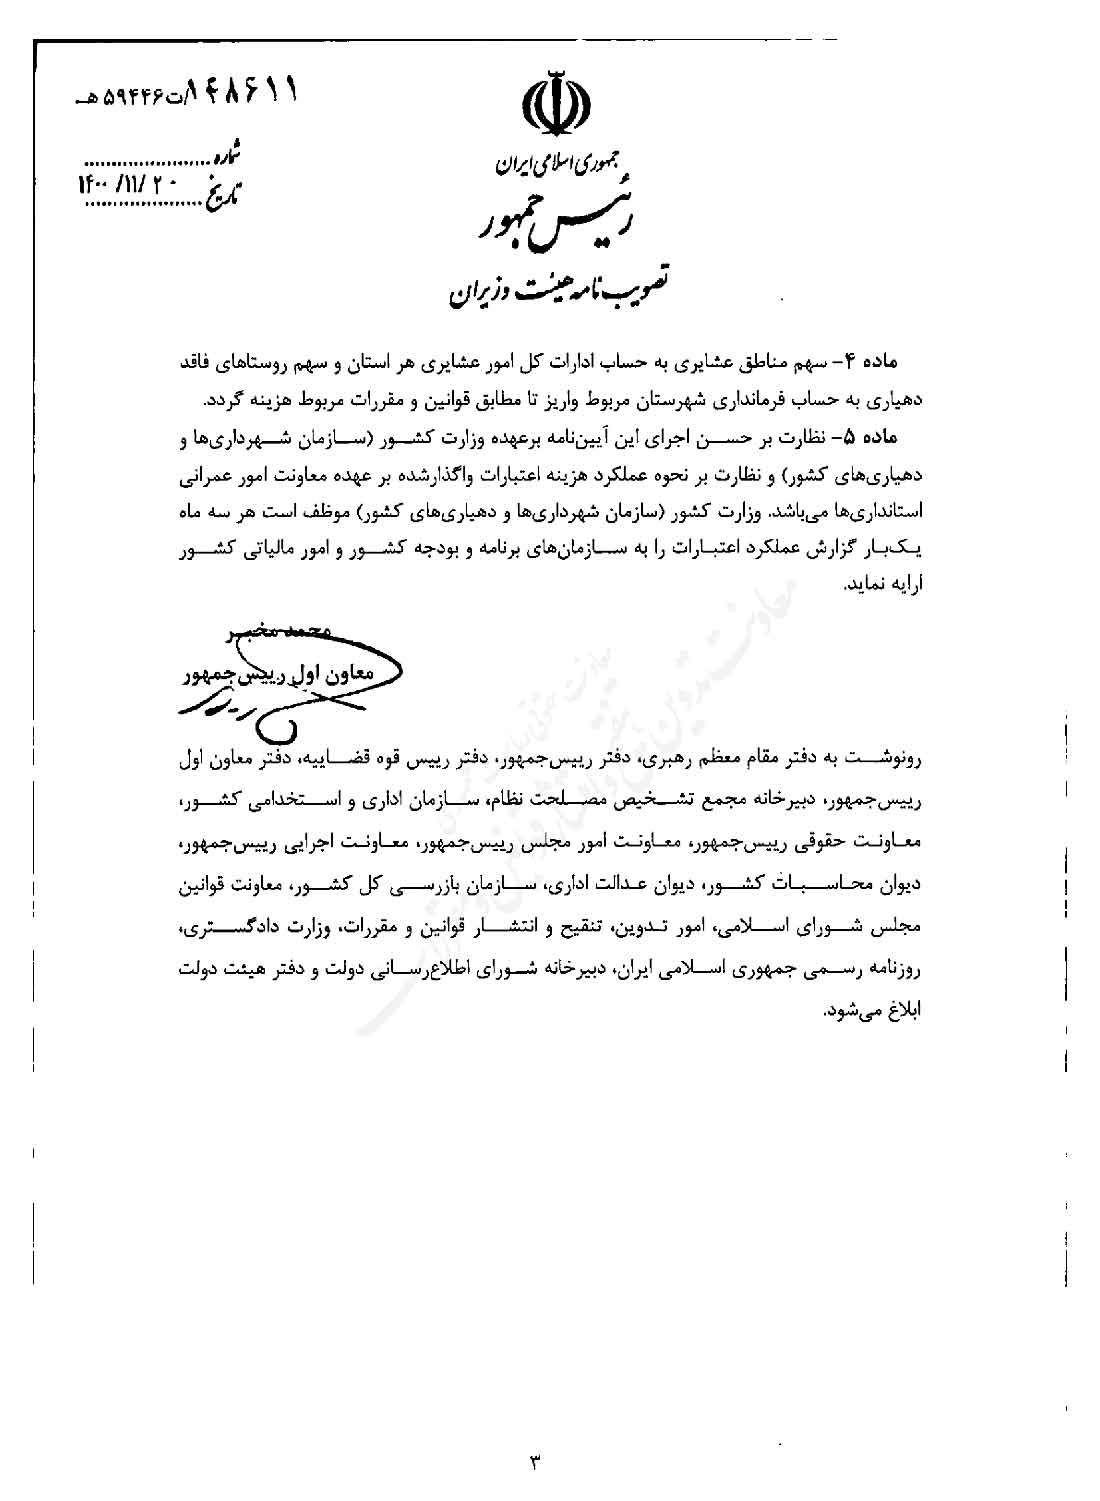 ۱۴۸۶۱۱/ت۵۹۴۴۶هـ
شماره
۱۴۰۰/۱۱/۲۰
تاریخ
جمهوری اسلامی ایران
رئیس جمهور
تصویب نامه هیئت وزیران
ماده ۴- سهم مناطق عشایری به حساب ادارات کل امور عشایری هر استان و سهم روستاهای فاقد
دهیاری به حساب فرمانداری شهرستان مربوط واریز تا مطابق قوانین و مقررات مربوط هزینه گردد.
ماده ۵- نظارت بر حسن اجرای این آیین‌نامه برعهده وزارت کشور (سازمان شهرداری‌ها و
دهیاری‌های کشور) و نظارت بر نحوه عملکرد هزینه اعتبارات واگذارشده بر عهده معاونت امور عمرانی
استانداری‌ها می‌باشد. وزارت کشور (سازمان شهرداری‌ها و دهیاری‌های کشور) موظف است هر سه ماه
یک‌بار گزارش عملکرد اعتبارات را به سازمان‌های برنامه و بودجه کشور و امور مالیاتی کشور
ارایه نماید.
محمد مخبر
معاون اول رییس‌جمهور
رونوشت به دفتر مقام معظم رهبری، دفتر رییس‌جمهور، دفتر رییس قوه قضاییه، دفتر معاون اول
رییس‌جمهور، دبیرخانه مجمع تشخیص مصلحت نظام، سازمان اداری و استخدامی کشور،
معاونت حقوقی رییس‌جمهور، معاونت امور مجلس رییس‌جمهور، معاونت اجرایی رییس‌جمهور،
دیوان محاسبات کشور، دیوان عدالت اداری، سازمان بازرسی کل کشور، معاونت قوانین
مجلس شورای اسلامی، امور تدوین، تنقیح و انتشار قوانین و مقررات، وزارت دادگستری،
روزنامه رسمی جمهوری اسلامی ایران، دبیرخانه شورای اطلاع‌رسانی دولت و دفتر هیئت دولت
ابلاغ می‌شود.
۳